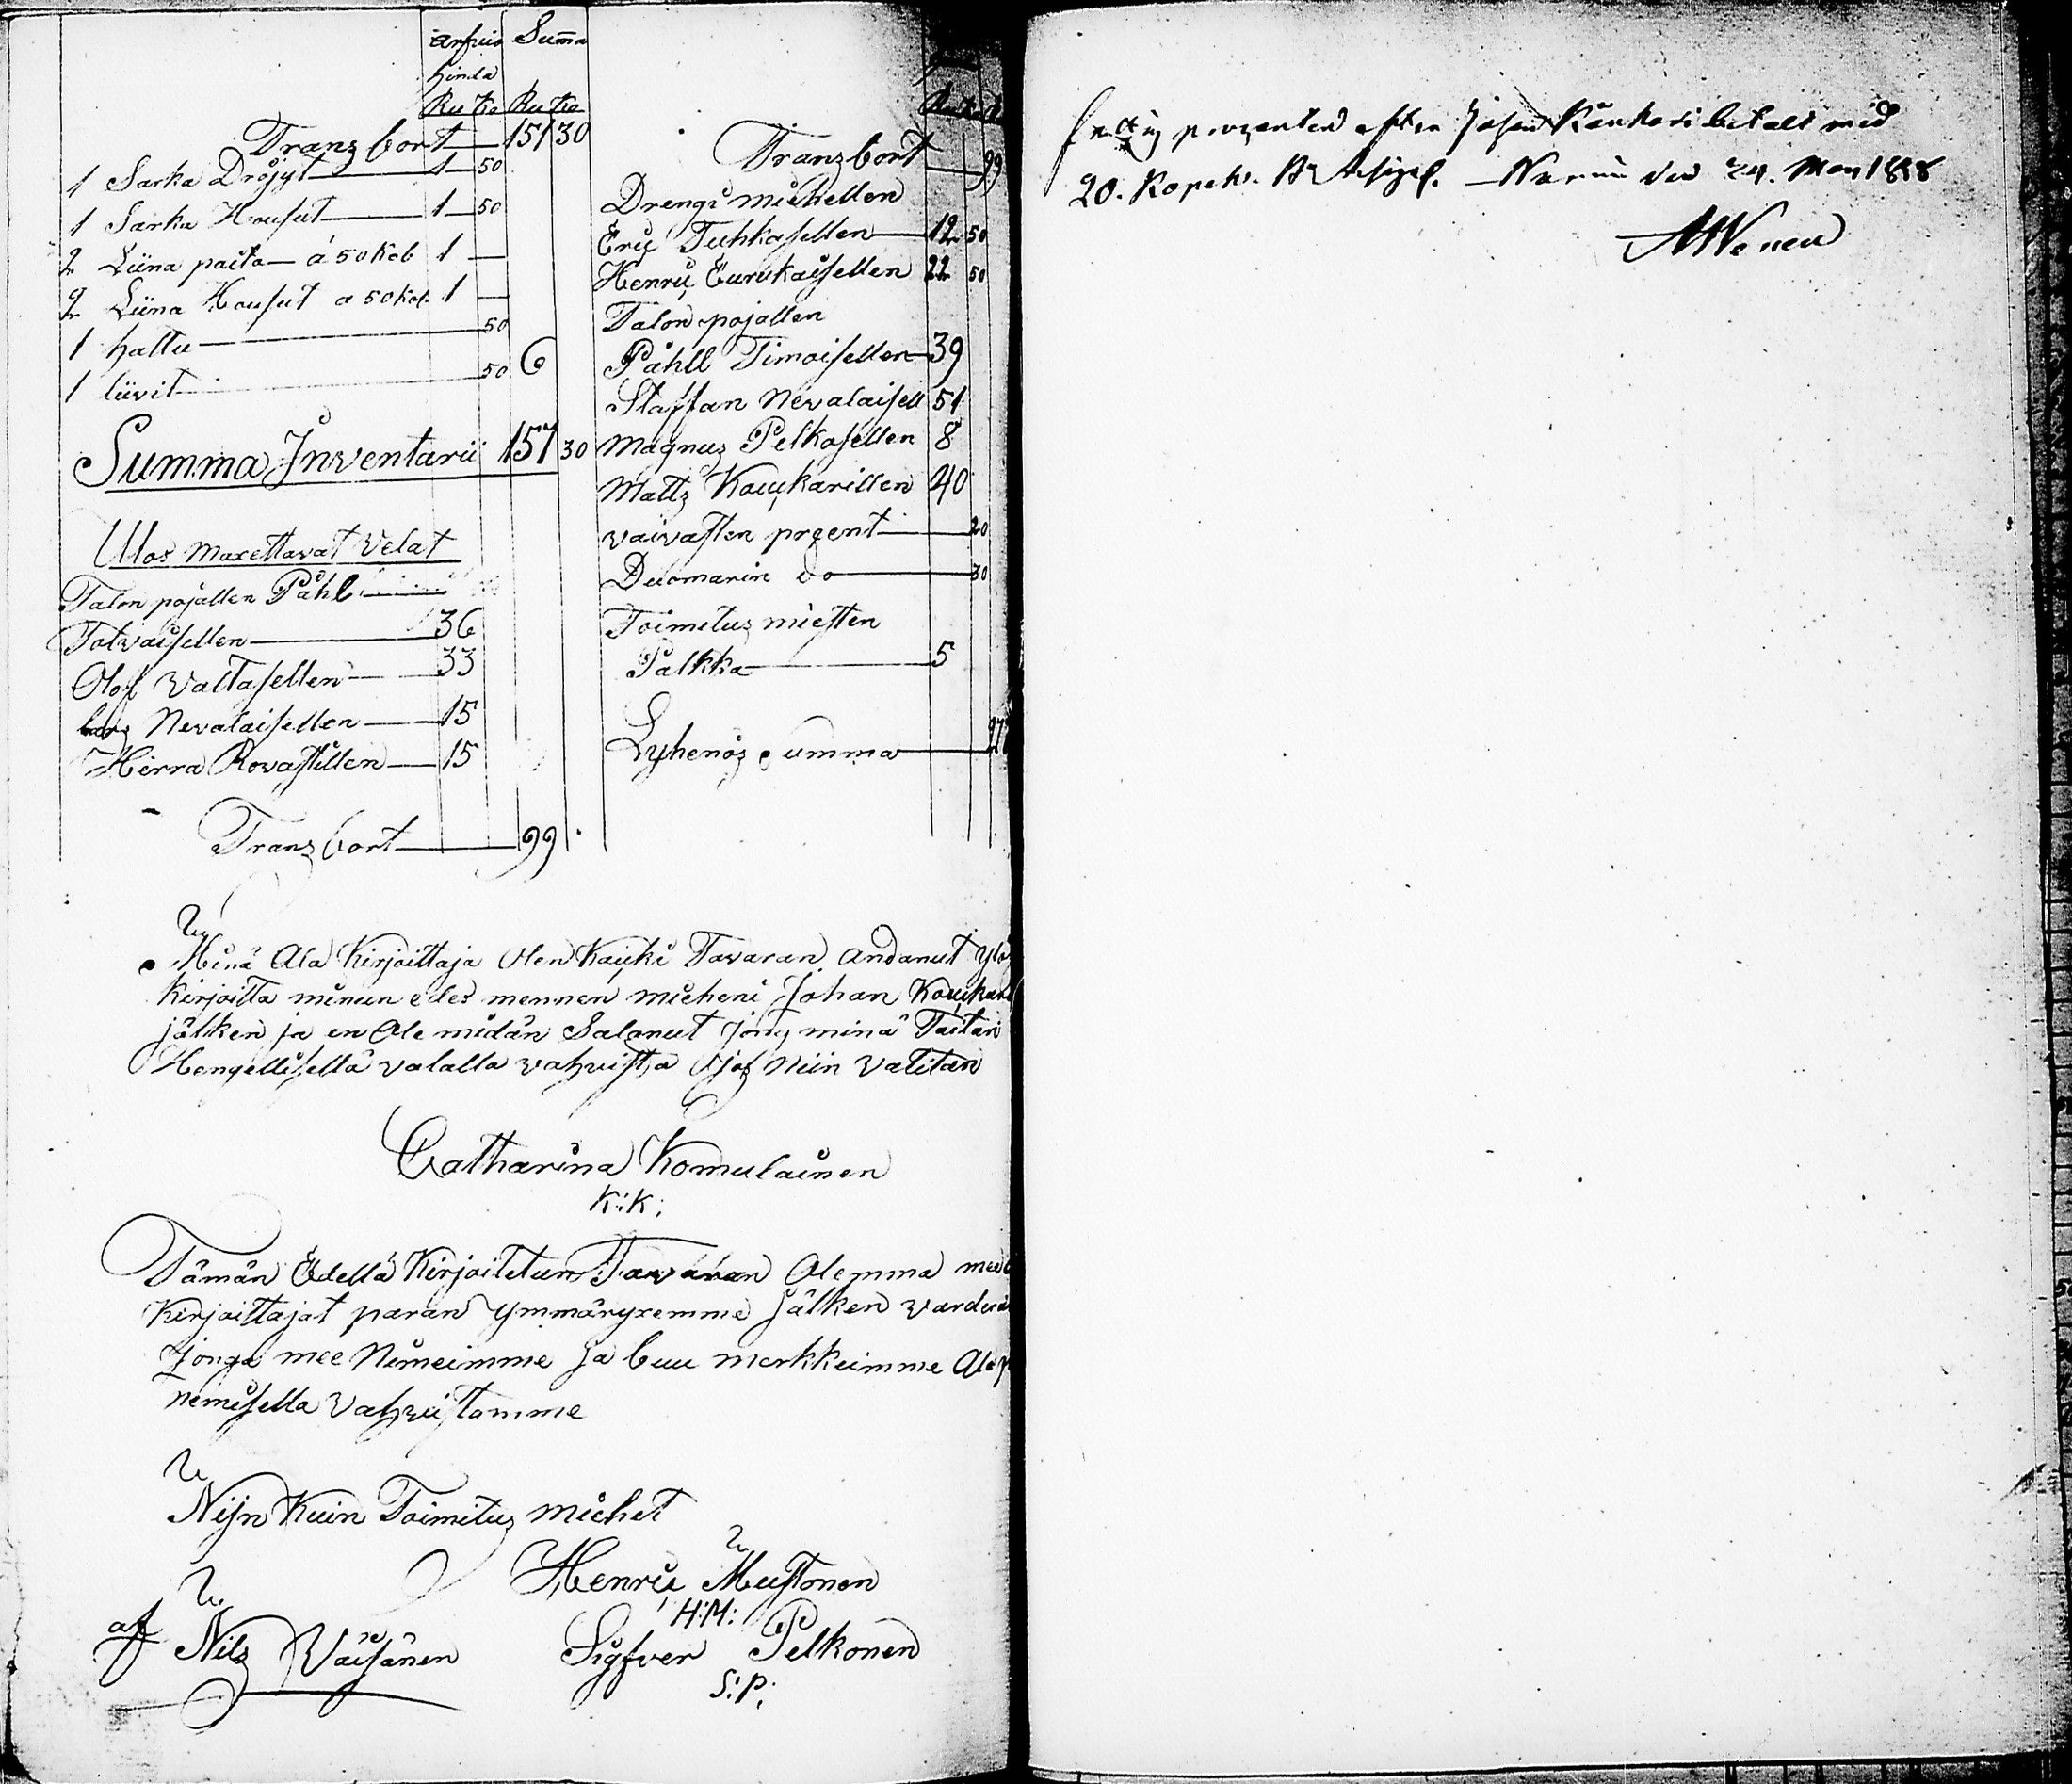 Arfvio Summa
hinda
Ru Ko Ru Ko
Transbort 151 30
1 Sarka Dröijyt 1 50
1 Sarka Housut 1 50
2 Liina paita á 50 Kob 1 —
2 Liina Housut a 50 Kob. 1 —
1 hattu 50
1 liivit 50 6
Summa Inventarii 157 30
Ulos maxettavat Velat
Talon pojallen Påhl
Tolvaisellen 36
Olof Valtasellen 33
Lars Nevalaisellen 15
Herra Rovastillen 15
Transbort 99
Transbort 99
Drengi miehellen
Eric Tuhkasellen 12 50
Henric Eurukaisellen 22 50
Talon pojallen
Påhll Timoisellen 39
Staffan Nevalaisell 51
Magnus Pelkosellen 8
Matts Kouckarillen 40
vaivasten prcent 20
Duomarin do 30
Toimitus miesten
Palkka 5
Lyhenös summa 277
Minä Ala Kirjoittaja Olen Kaicki Tavaran andanut ylös
Kirjoitta minun edes mennen mieheni Johan Kouckari
jälken ja en Ole midän Salanut jong minä Taitan
Hengellisellä valalla vahvista Jos Niin Vaditan
Catharina Komulainen
K:K:
Tämän Edellä Kirjoitetun Tavaran Olemma
Kirjoittajat paran ymmäryxemme jälken
Jonga mee Nimeimme ja buu merkkeimme Ala
nemisella Vahvistamme
Nijn Kuin Toimitus miehet
Henric Mustonen
H:M:
af Nils Väisänen Sigfver Pelkonen
S:P:
fattig procenten efter Johan Koukari betalt med
20. Kopek. Nurmis den 24. May 1818